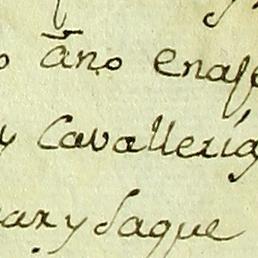 o año enaje
y Cavalleria
ar y Saque